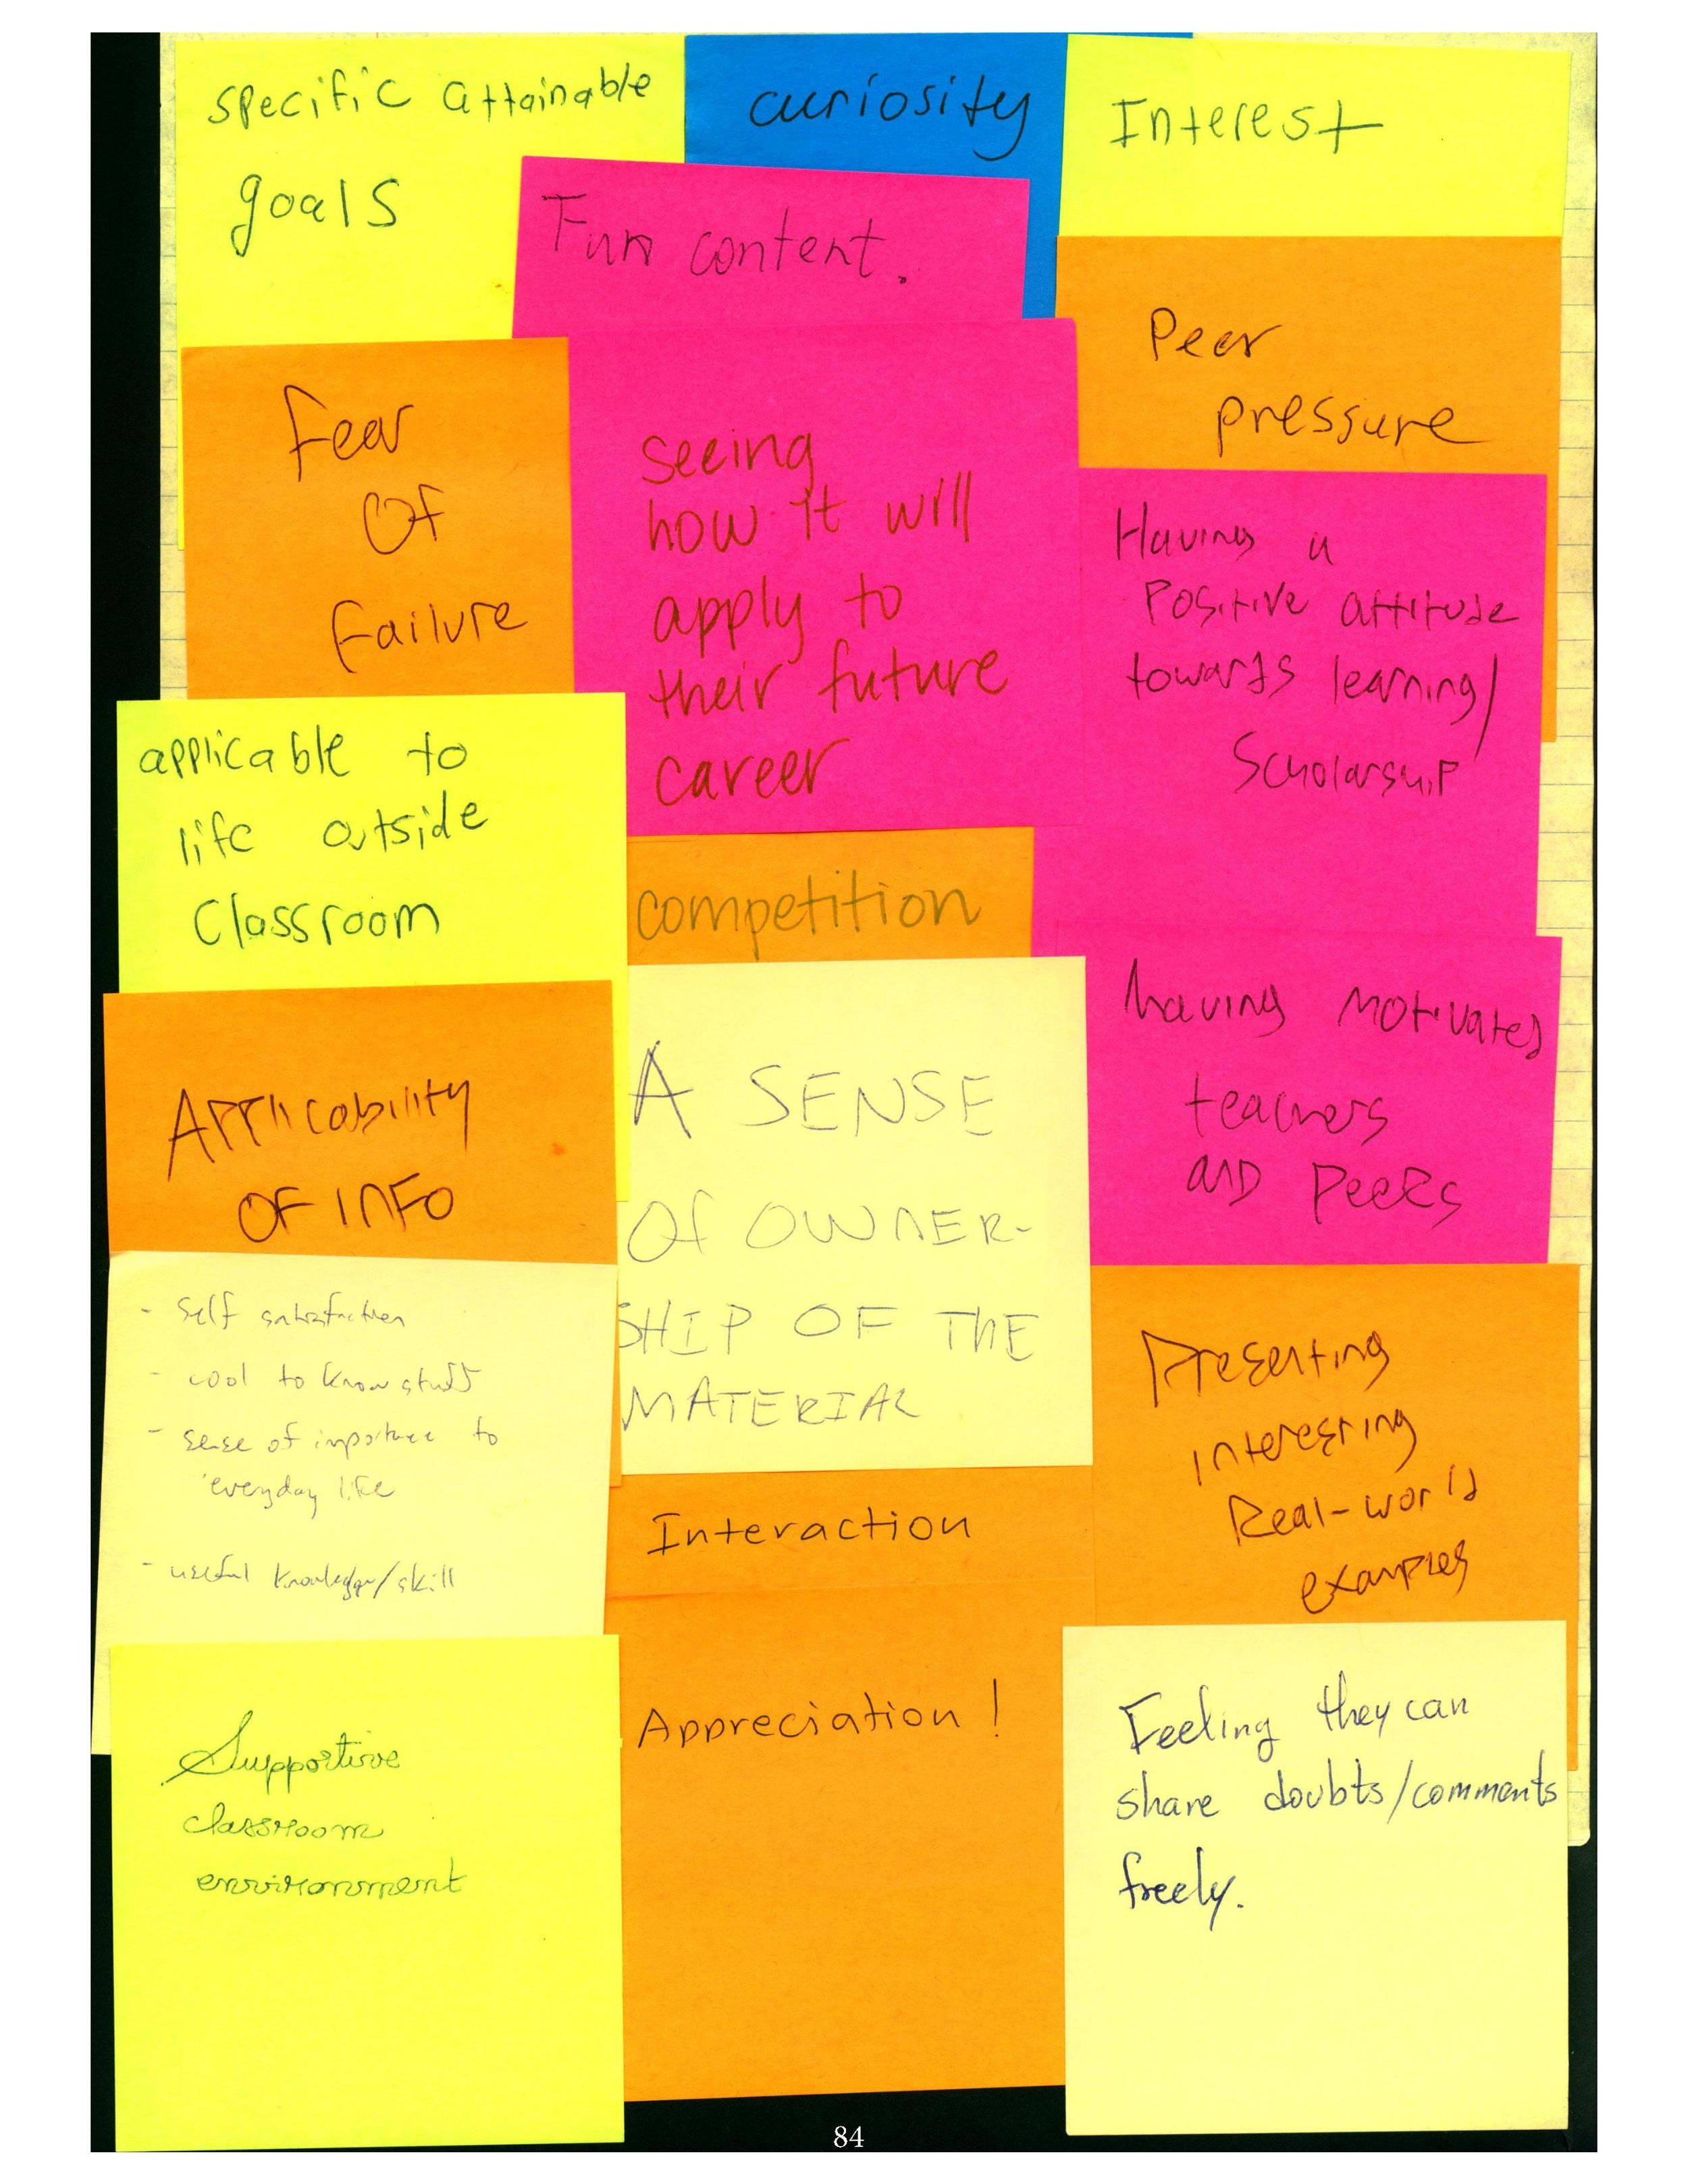 specific attainable
goals
curiosity
Interest
Fun content.
Peer
pressure
Fear
OF
Failure
seeing
how it will
apply to
their future
career
Having a
Positive attitude
towards learning/
Scholarship
applicable to
life outside
Classroom
competition
having motivated
teachers
and Peers
Applicability
OF INFO
A SENSE
Of OWNER-
SHIP OF THE
MATERIAL
- self satisfaction
- cool to know stuff
- sense of importance to
everyday life
- useful knowledge/skill
Presenting
interesting
Real-world
examples
Interaction
Appreciation!
Supportive
classroom
environment
Feeling they can
share doubts/comments
freely.
84